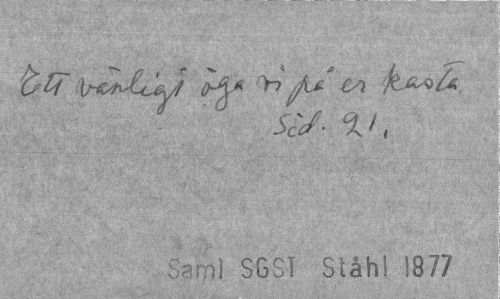 Ett vänligt öga vi på er kasta.
Sid. 21.
Saml SGST Ståhl 1877